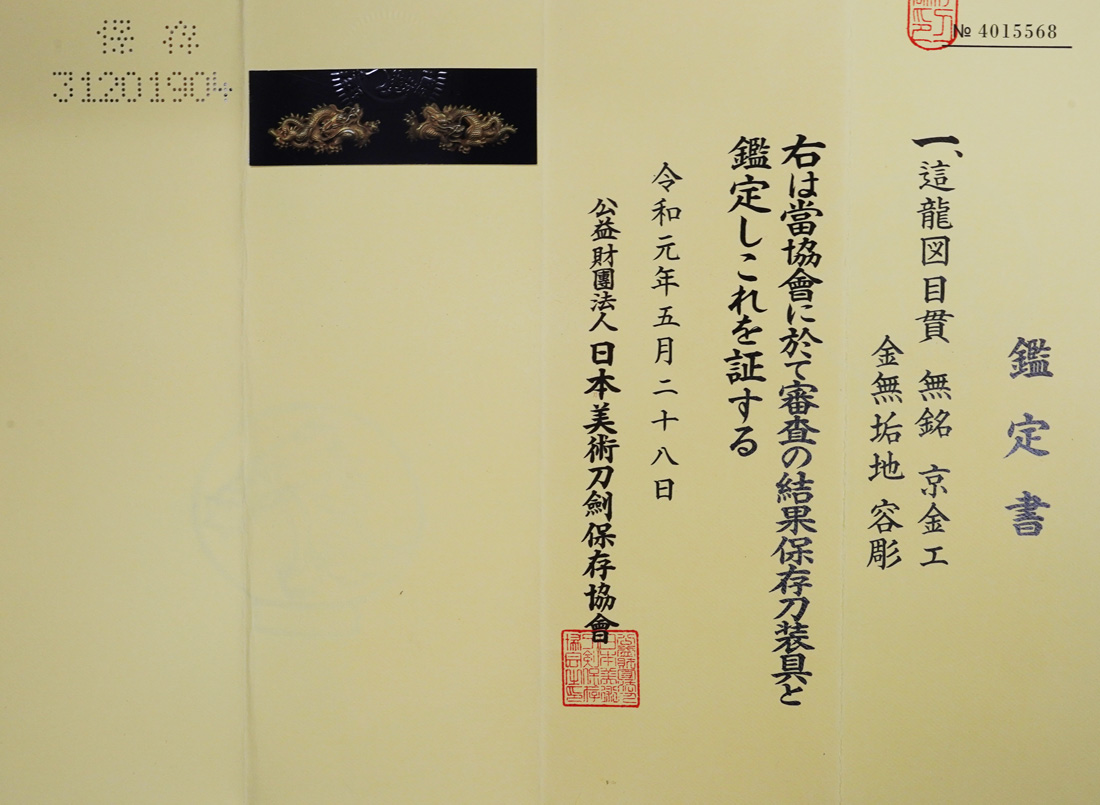 № 4015568
鑑定書
一、這龍図目貫 無銘 京金工
金無垢地 容彫
右は當協會に於て審査の結果保存刀装具と
鑑定しこれを証する
令和元年五月二十八日
公益財團法人 日本美術刀劍保存協會
保存
31201904